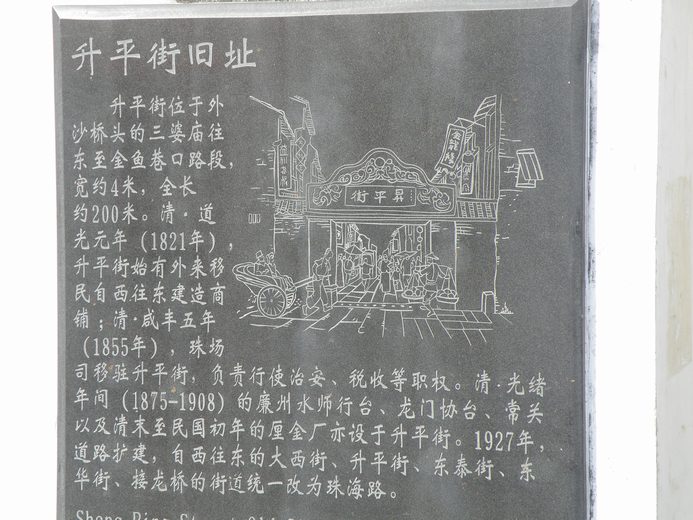 升平街旧址
升平街位于外
沙桥头的三婆庙往
东至金鱼巷口路段，
宽约4米，全长
约200米。清·道
光元年（1821年），
升平街始有外来移
民自西往东建造商
铺；清·咸丰五年
（1855年），珠场
司移驻升平街，负责行使治安、税收等职权。清·光绪
年间（1875-1908）的廉州水师行台、龙门协台、常关
以及清末至民国初年的厘金厂亦设于升平街。1927年，
道路扩建，自西往东的大西街、升平街、东泰街、东
华街、接龙桥的街道统一改为珠海路。
街平昇